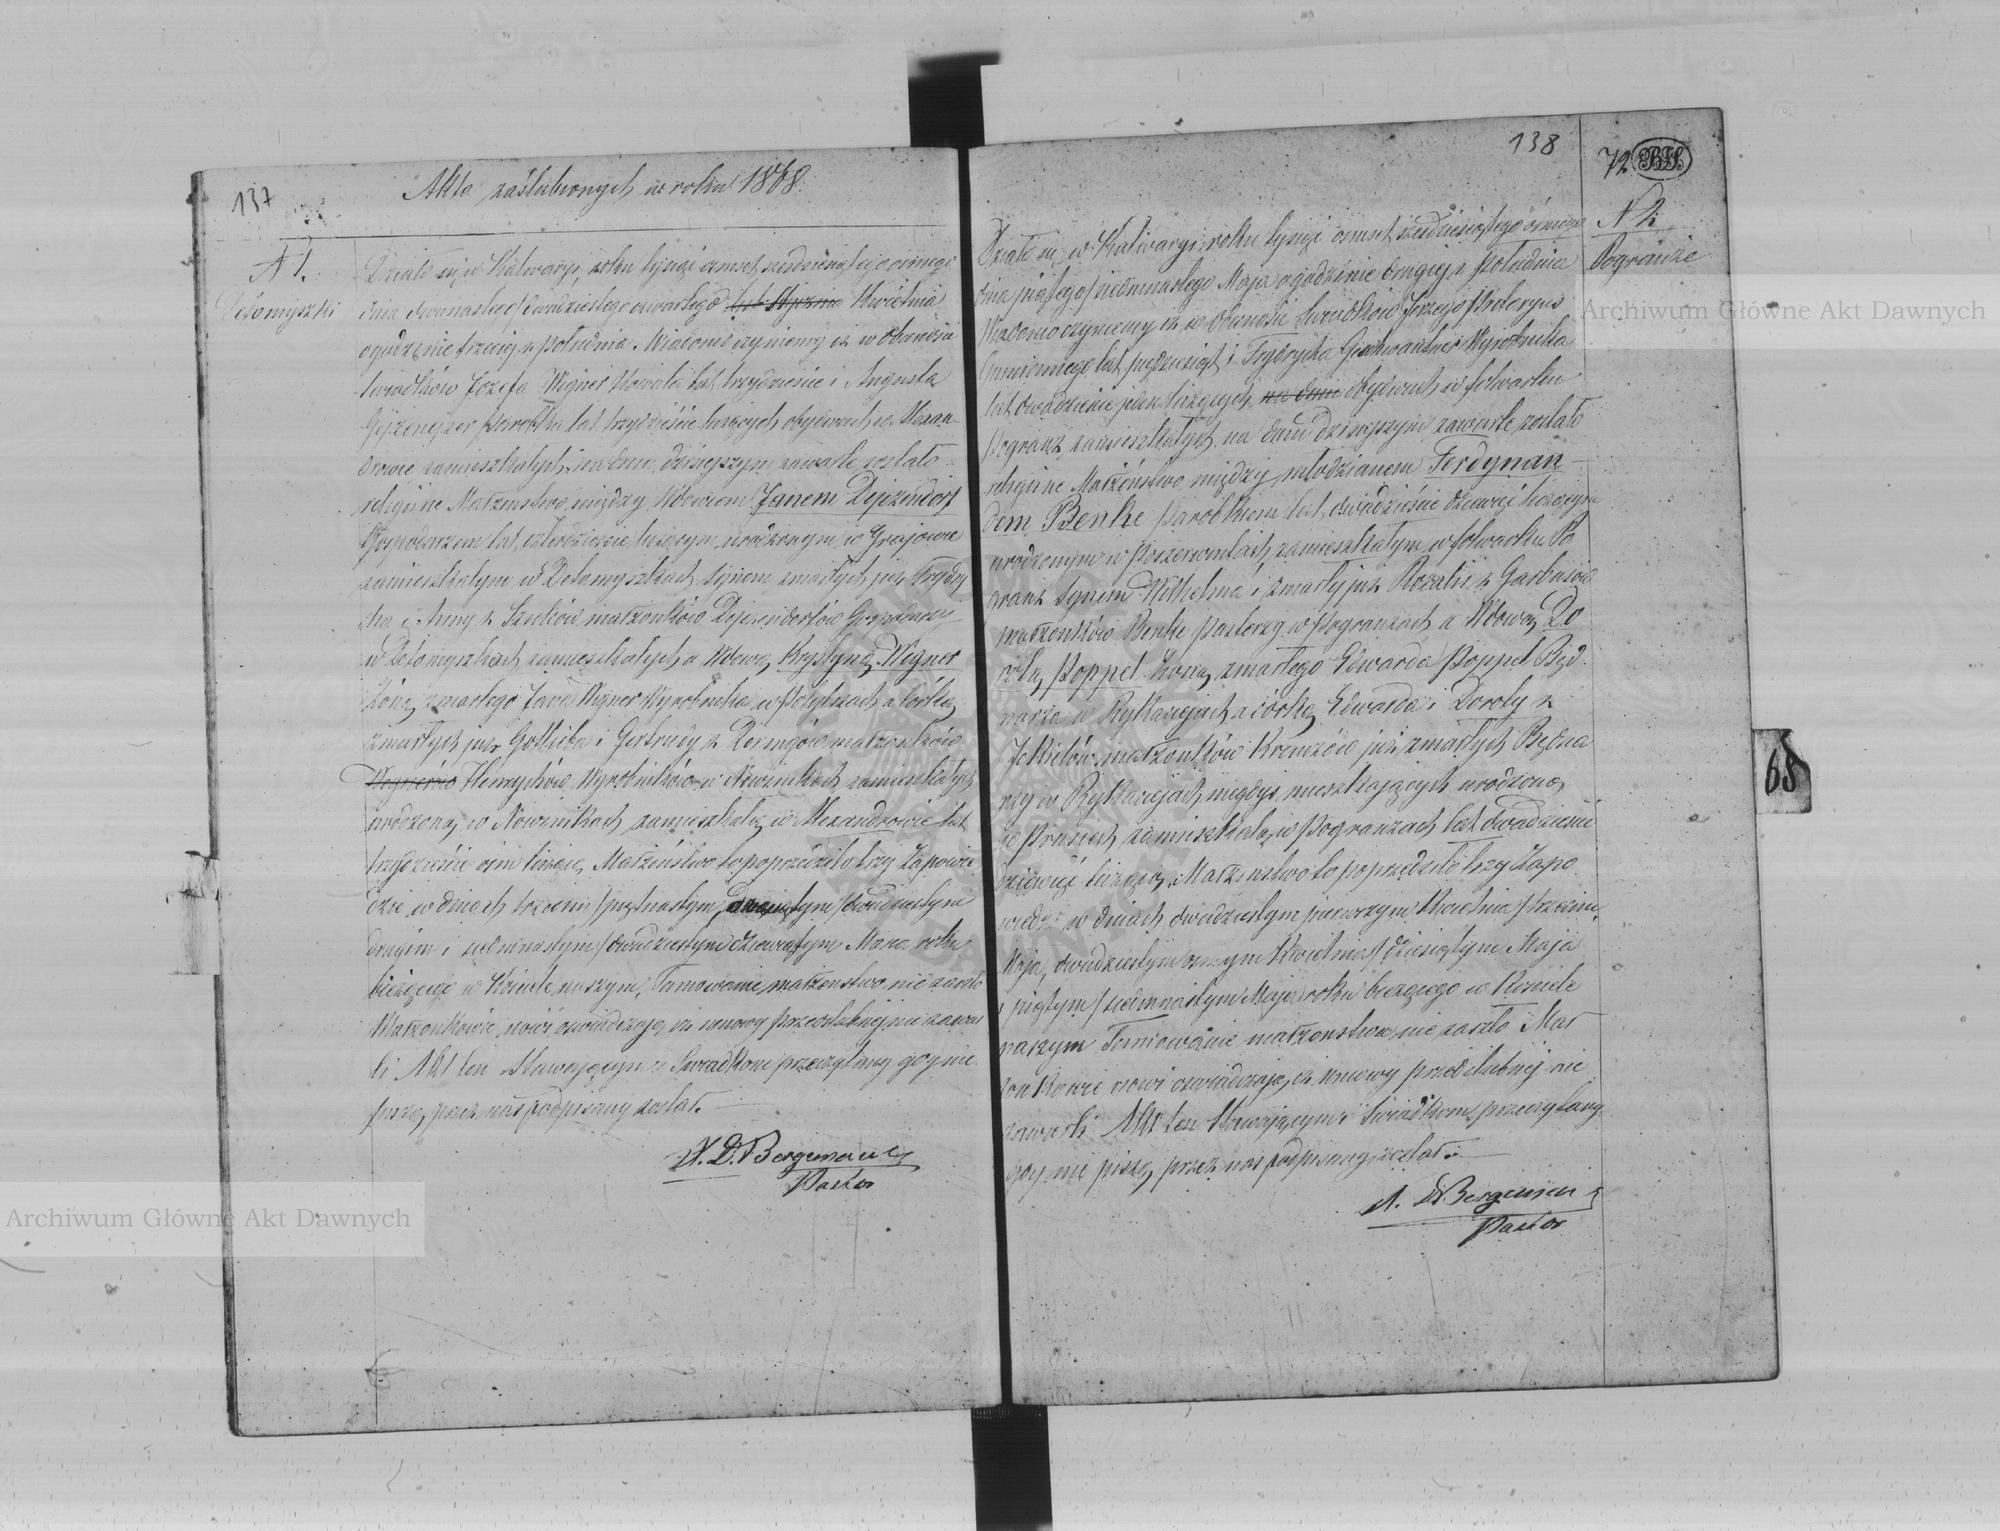 137
Akta zaślubionych w roku 1868.
N 1.
Dełomyszki
Działo się w Kalwaryi, roku tysiąc osmset sześdziesiątego osmego
dnia dwunastego/dwudziestego czwartego Kwietnia
o godzinie trzeciej z południa. Wiadomo czyniemy iż w obecności
świadków Józefa Wigner Kowala lat trzydzieście i Augusta
parobka lat trzydzieście liczących obydwóch w Alexan-
drowie zamieszkałych, na dniu dzisiejszym zawarte zostało
religijne Małżeństwo między Wdowcem Janem Dejzendorf
Gospodarzem lat czterdzieście liczącym, urodzonym w Grajowie
zamieszkałym w Dełomyszkach synem zmarłych już Frydry
cha i Anny z małżonków Dejzendorfów Gospodarzy
w Dełomyszkach zamieszkałych a Wdową Krystyną Wigner
żoną zmarłego Jana Wigner Wyrobnika w a córką
zmarłych już Gotliba i Gertrudy z małżonków
Wyrobników w Nowinikach zamieszkałych
urodzoną w Nowinikach zamieszkałą w Alexandrowie lat
trzydzieście ośm liczącą. Małżeństwo to poprzedziło trzy Zapowie
dzie w dniach trzecim/piętnastym, dziesiątym/dwudziestym
drugim i siedmnastym/dwudziestym dziewiątym Marca roku
bieżącego w Kościele naszym. Tamowanie małżeństwa nie zaszło
Małżonkowie nowi oświadczają, iż umowy przedślubnej nie zawar
li Akt ten stawającym i Świadkom przeczytany gdy nie
piszą, przez nas podpisany został.
A. D. Bergemann
Pastor
138
72 BJS.
N 2.
Pogranże
Działo się w Kalwaryi roku tysiąc osmset sześdziesiątego ósmego
dnia piątego/siedmnastego Maja o godzinie drugiej z południa
Wiadomo czyniemy iż w obecności Świadków Jerzego
lat pięćdziesiąt i Frydrycha Wyrobnika
lat dwadzieście jeden liczących, obydwuch w folwarku
Pogranż zamieszkałych, na dniu dzisiejszym zawarte zostało
religijne Małżeństwo między młodzianem Ferdynan-
dem Benke parobkiem lat dwadzieście dziewięć liczącym
urodzonym w zamieszkałym w folwarku Po
granż synem Wilhelma i zmarłej już Rozalii z
małżonków Benke pasterzy w Pogranżach a Wdową Do
rotą Poppel żoną zmarłego Edwarda Poppel Będ-
narza w Rykaciejach a córką Edwarda i Doroty z
małżonków już zmarłych Będna
rzy w Rykaciejach niegdyś mieszkających urodzoną
w Prusiech zamieszkałą w Pogranżach lat dwadzieście
dziewięć liczącą. Małżeństwo to poprzedziło trzy Zapo-
wiedzi w dniach dwudziestym pierwszym Kwietnia/trzecim
Maja, dwudziestym osmym Kwietnia/dziesiątym Maja
i piątym/siedmnastym Maja roku bieżącego w Kościele
naszym Tamowanie małżeństwa nie zaszło Mał
żonkowie nowi oświadczają, iż umowy przedślubnej nie
zawarli. Akt ten stawającym i Świadkom przeczytany
gdy nie piszą, przez nas podpisany został.
A. D. Bergemann
Pastor
65
Archiwum Główne Akt Dawnych
Archiwum Główne Akt Dawnych